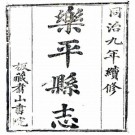 同治九年續修
樂平縣志
板藏翥山書院